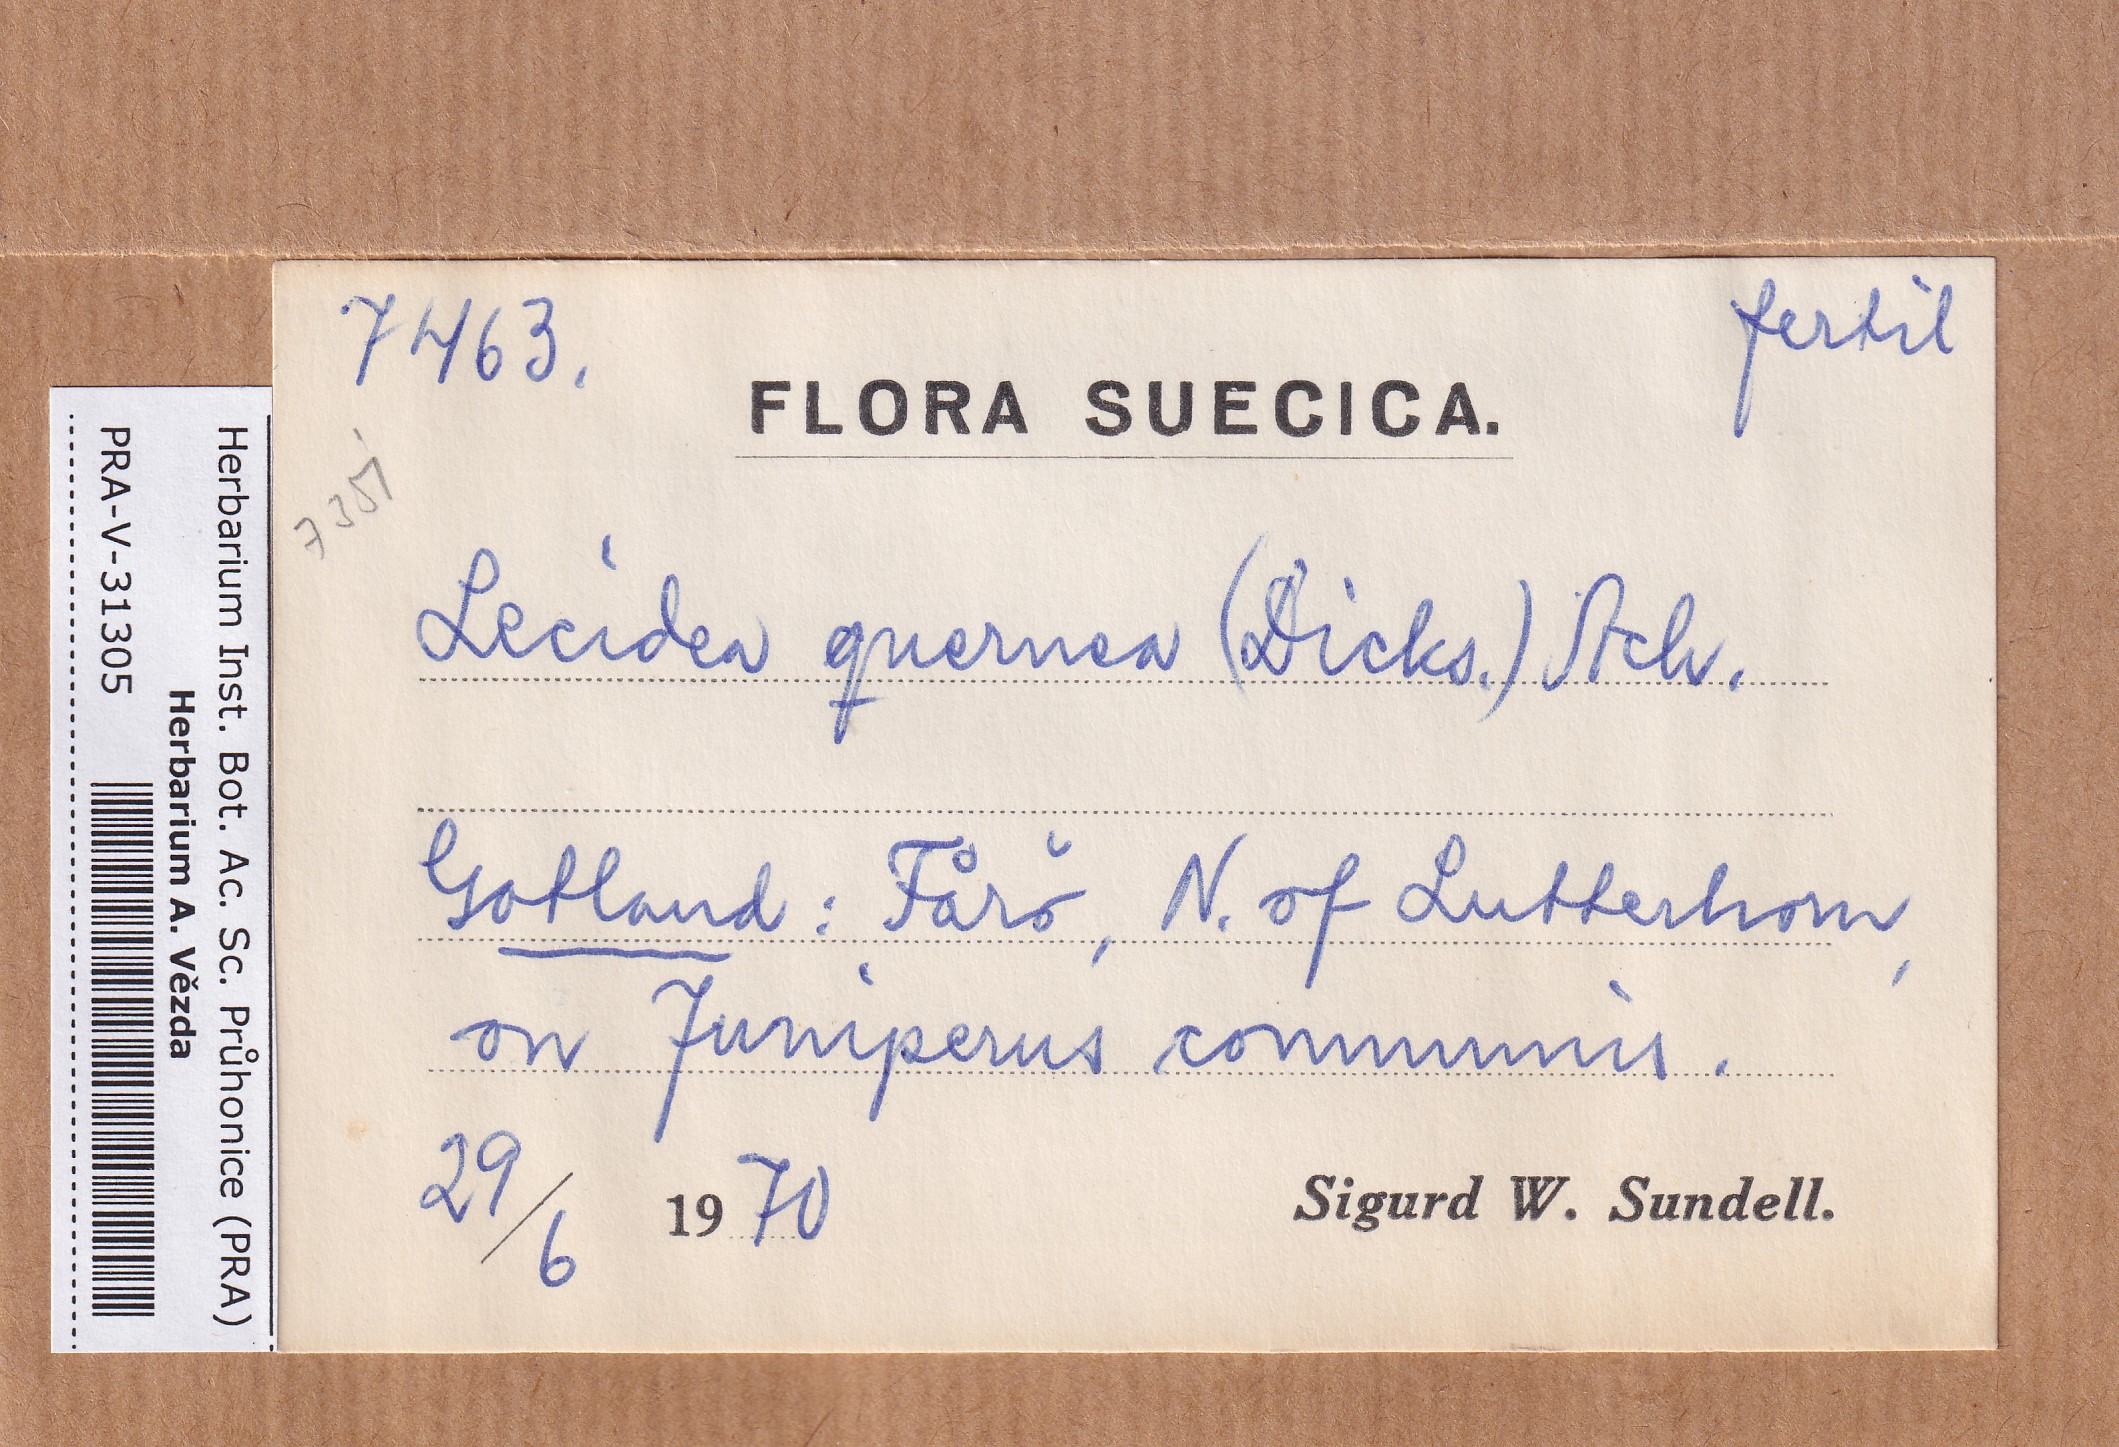 7463.
fertil
FLORA SUECICA.
7351
Lecidea quernea (Dicks.) Ach.
Gotland: Fårö, N. of Lutterhorn,
on Juniperus communis.
29/6 1970
Sigurd W. Sundell.
Herbarium Inst. Bot. Ac. Sc. Průhonice (PRA)
Herbarium A. Vězda
PRA-V-31305